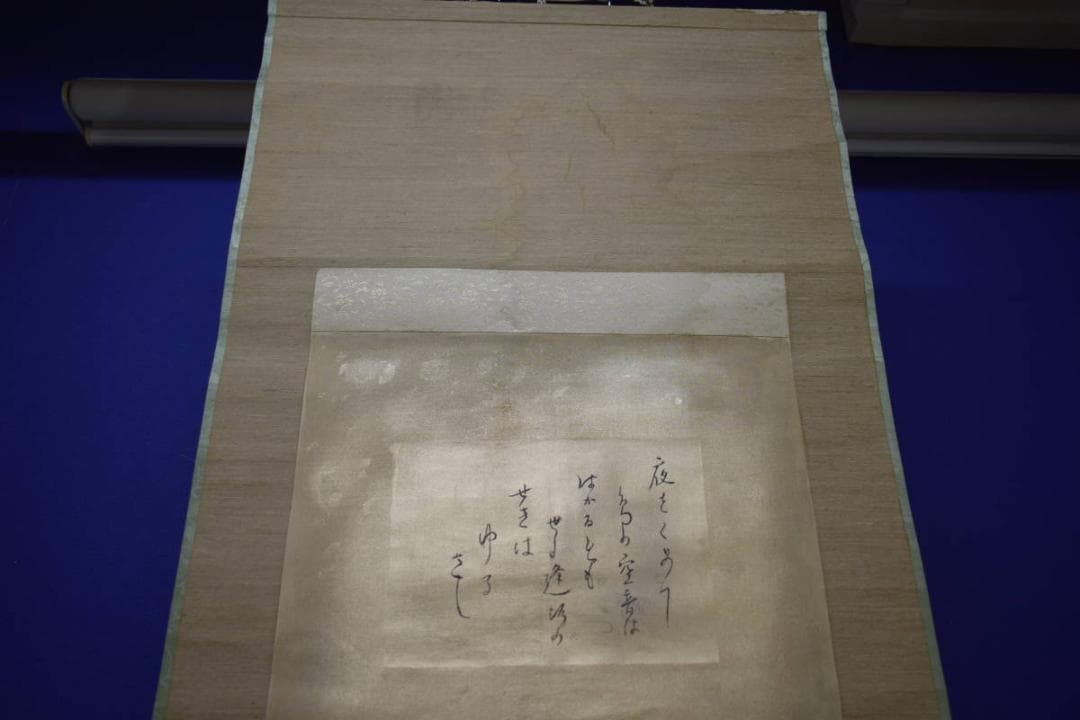 夜をこめて
とりの空音は
はかるとも
世に逢坂の
せきは
ゆる
さし